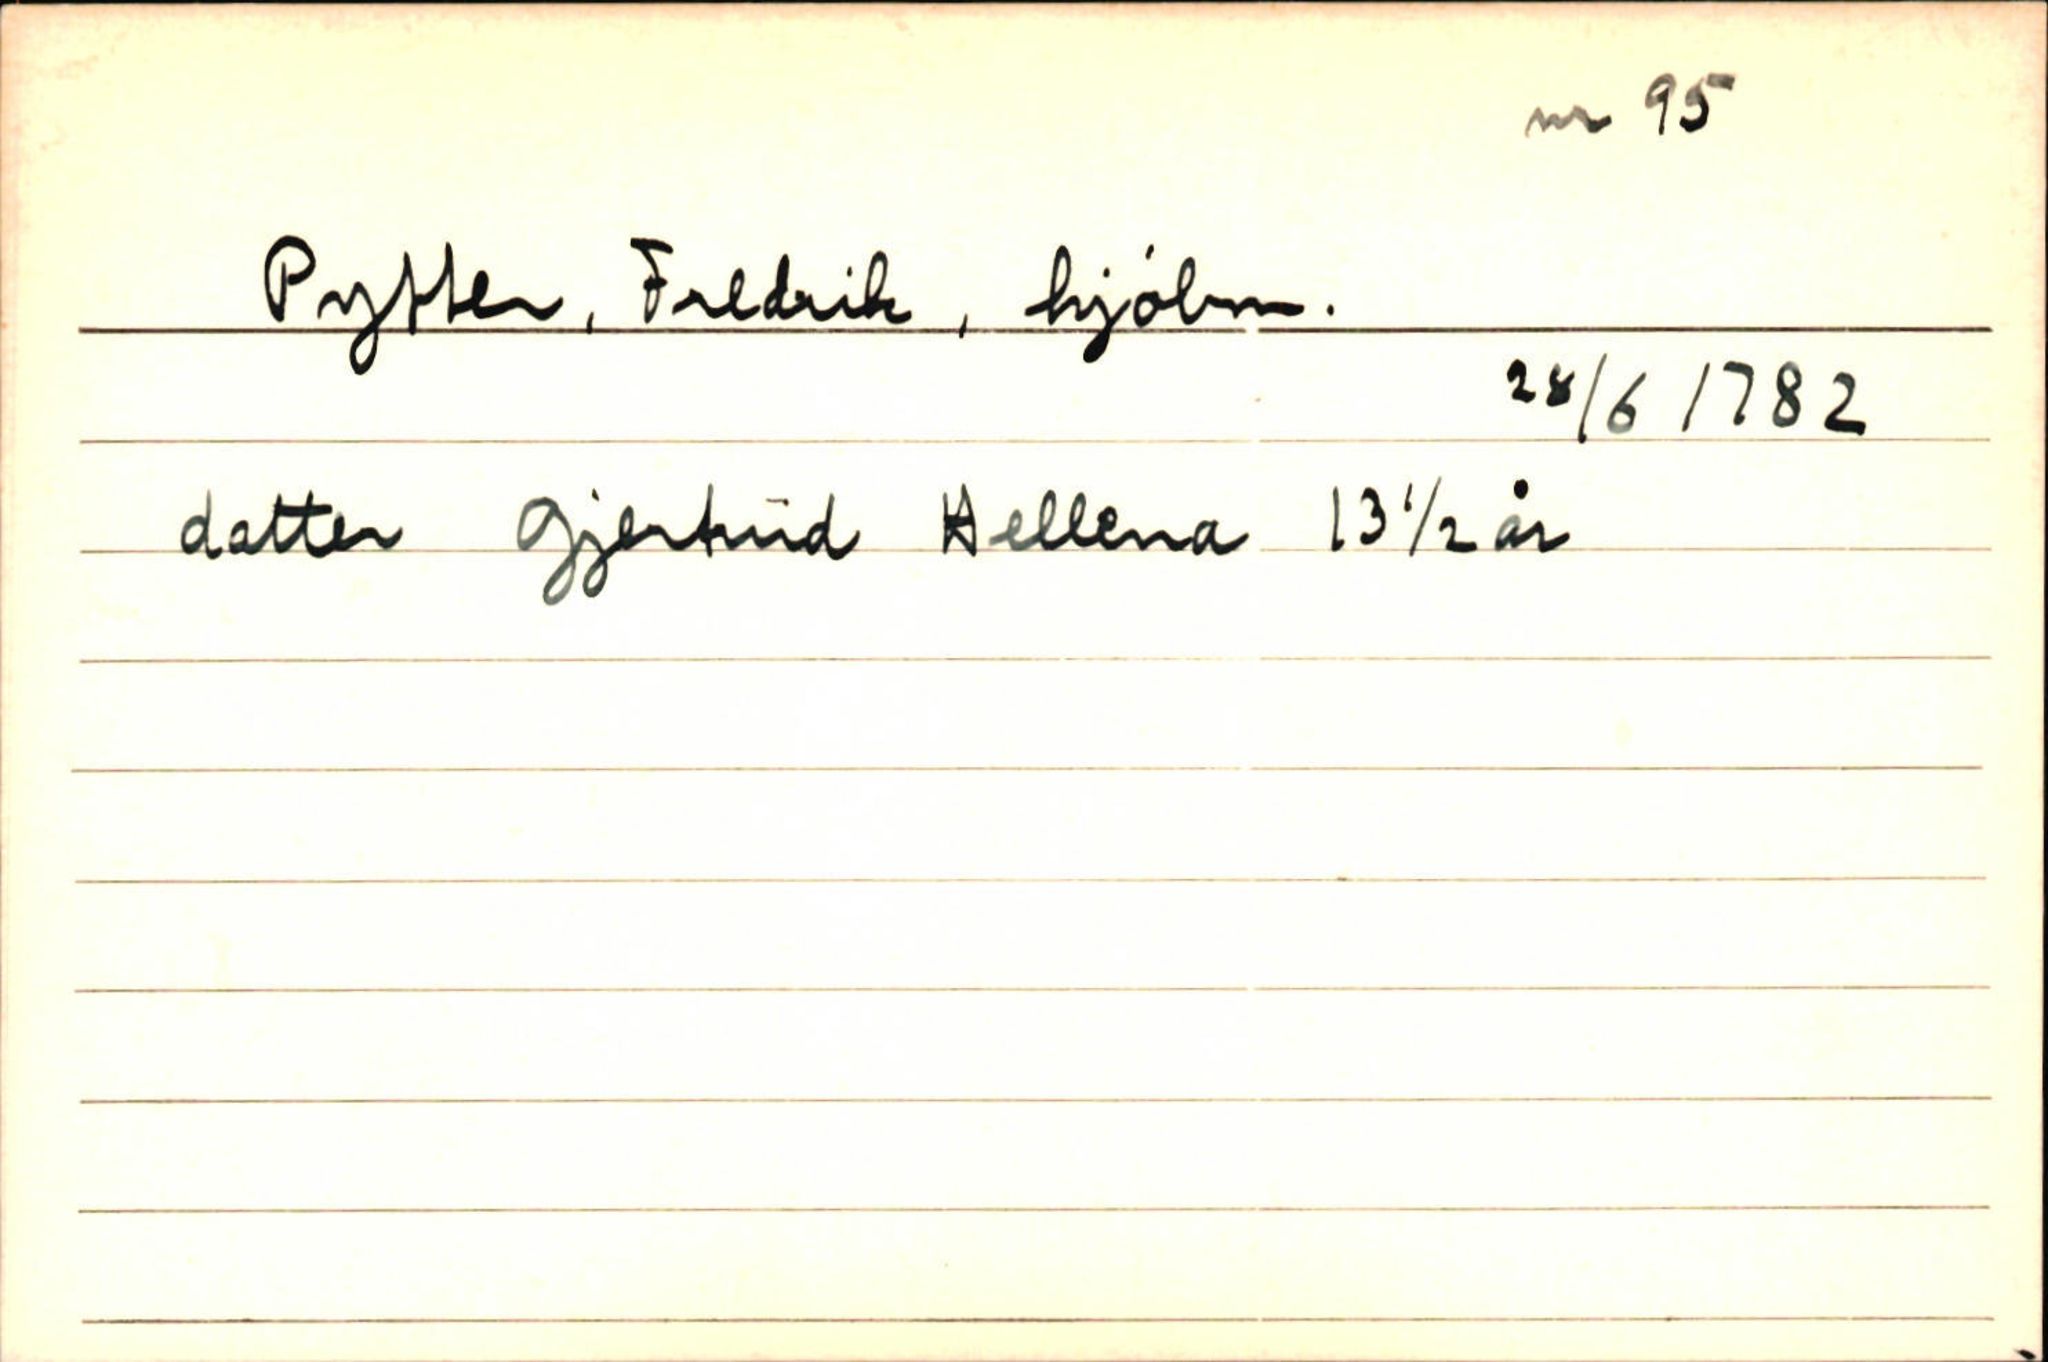 nr 95
Pytter, Fredrik, hjólm.
28/6 1782
datter Gjertrud Hellena 13 1/2 år